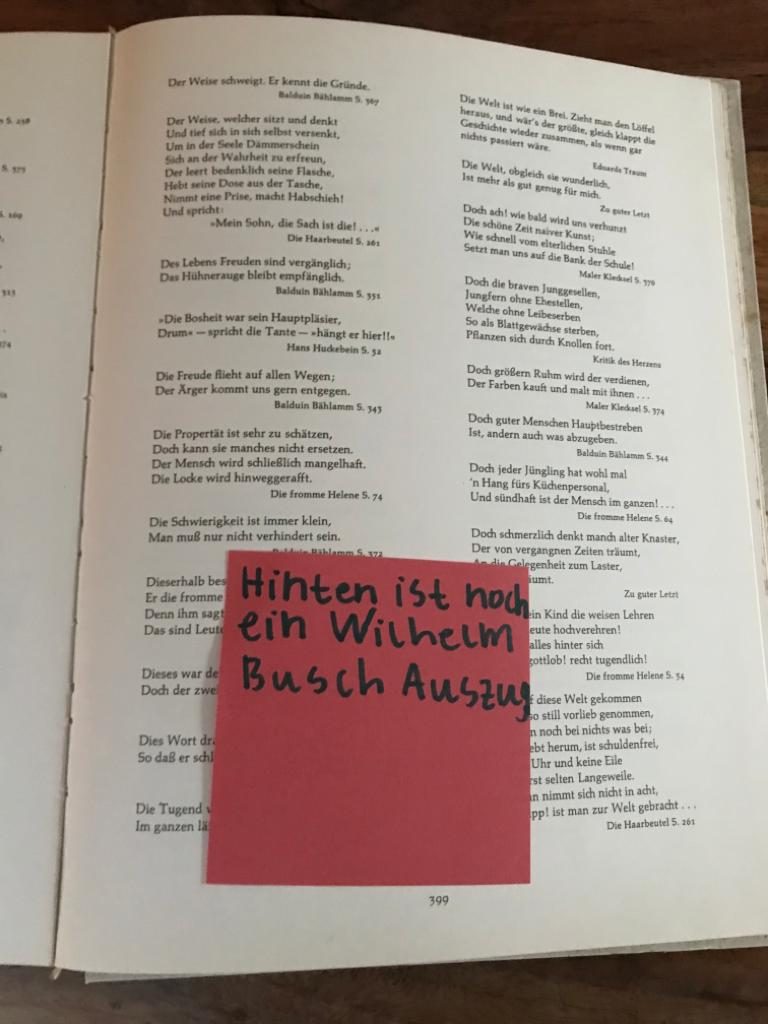 S. 258
S. 375
S. 269
Der Weise schweigt. Er kennt die Gründe.
Balduin Bählamm S. 367
Der Weise, welcher sitzt und denkt
Und tief sich in sich selbst versenkt,
Um in der Seele Dämmerschein
Sich an der Wahrheit zu erfreun,
Der leert bedenklich seine Flasche,
Hebt seine Dose aus der Tasche,
Nimmt eine Prise, macht Habschieh!
Und spricht:
»Mein Sohn, die Sach ist die! . . .«
Die Haarbeutel S. 261
Des Lebens Freuden sind vergänglich;
Das Hühnerauge bleibt empfänglich.
Balduin Bählamm S. 351
»Die Bosheit war sein Hauptpläsier,
Drum« — spricht die Tante — »hängt er hier!!«
Hans Huckebein S. 52
Die Freude flieht auf allen Wegen;
Der Ärger kommt uns gern entgegen.
Balduin Bählamm S. 343
Die Propertät ist sehr zu schätzen,
Doch kann sie manches nicht ersetzen.
Der Mensch wird schließlich mangelhaft.
Die Locke wird hinweggerafft.
Die fromme Helene S. 74
Die Schwierigkeit ist immer klein,
Man muß nur nicht verhindert sein.
Balduin Bählamm S. 372
Dieserhalb bes
Er die fromme
Denn ihm sagt
Das sind Leut
Dieses war de
Doch der zwe
Dies Wort dr
So daß er schl
Die Tugend
Im ganzen lä
Die Welt ist wie ein Brei. Zieht man den Löffel
heraus, und wär's der größte, gleich klappt die
Geschichte wieder zusammen, als wenn gar
nichts passiert wäre.
Eduards Traum
Die Welt, obgleich sie wunderlich,
Ist mehr als gut genug für mich.
Zu guter Letzt
Doch ach! wie bald wird uns verhunzt
Die schöne Zeit naiver Kunst;
Wie schnell vom elterlichen Stuhle
Setzt man uns auf die Bank der Schule!
Maler Klecksel S. 370
Doch die braven Junggesellen,
Jungfern ohne Ehestellen,
Welche ohne Leibeserben
So als Blattgewächse sterben,
Pflanzen sich durch Knollen fort.
Kritik des Herzens
Doch größern Ruhm wird der verdienen,
Der Farben kauft und malt mit ihnen . . .
Maler Klecksel S. 374
Doch guter Menschen Hauptbestreben
Ist, andern auch was abzugeben.
Balduin Bählamm S. 344
Doch jeder Jüngling hat wohl mal
'n Hang fürs Küchenpersonal,
Und sündhaft ist der Mensch im ganzen! . . .
Die fromme Helene S. 64
Doch schmerzlich denkt manch alter Knaster,
Der von vergangnen Zeiten träumt,
An die Gelegenheit zum Laster,
äumt.
Zu guter Letzt
ein Kind die weisen Lehren
eute hochverehren!
alles hinter sich
gottlob! recht tugendlich!
Die fromme Helene S. 54
f diese Welt gekommen
so still vorlieb genommen,
n noch bei nichts was bei;
ebt herum, ist schuldenfrei,
Uhr und keine Eile
rst selten Langeweile.
n nimmt sich nicht in acht,
pp! ist man zur Welt gebracht . . .
Die Haarbeutel S. 261
Hinten ist noch
ein Wilhelm
Busch Auszug
399